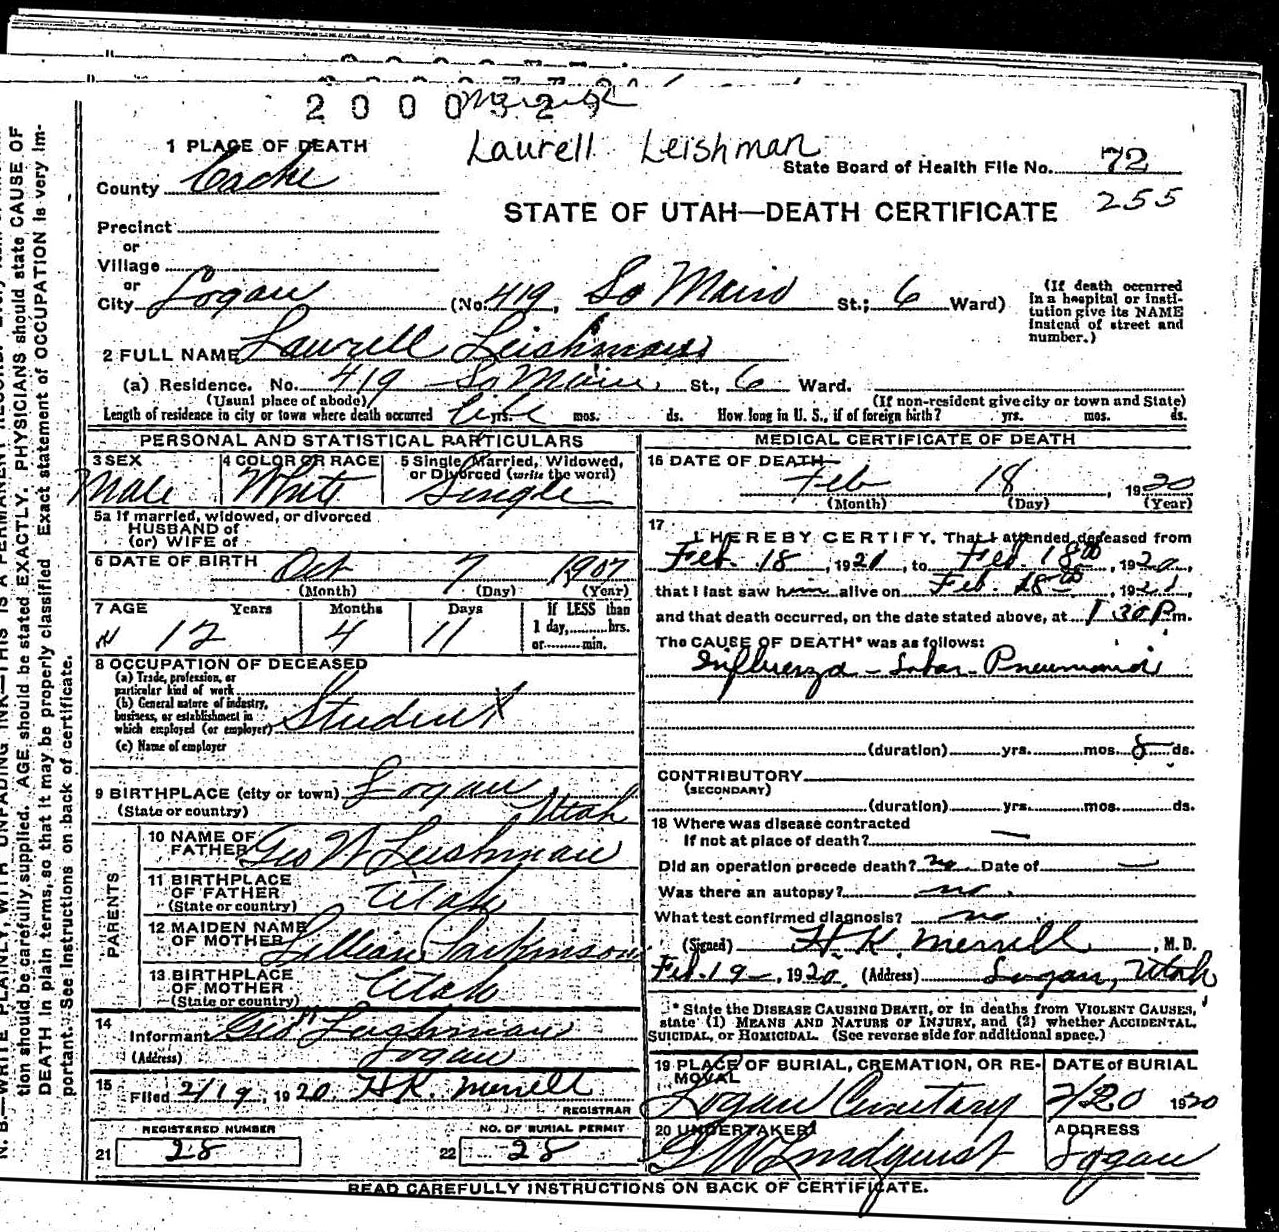 2 0 0 0 3 2 9
Laurell Leishman
1 PLACE OF DEATH
State Board of Health File No. 72
255
County Cache
STATE OF UTAH—DEATH CERTIFICATE
Precinct
or
Village
or
City Logan (No. 419, So Main St.; 6 Ward)
(If death occurred in a hospital or institution give its NAME instead of street and number.)
2 FULL NAME Laurell Leishman
(a) Residence. No. 419 So Main St., 6 Ward.
(Usual place of abode) (If non-resident give city or town and State)
Length of residence in city or town where death occurred life yrs. mos. ds. How long in U. S., if of foreign birth? yrs. mos. ds.
PERSONAL AND STATISTICAL PARTICULARS
3 SEX Male
4 COLOR OR RACE White
5 Single, Married, Widowed, or Divorced (write the word) Single
5a If married, widowed, or divorced
HUSBAND of
(or) WIFE of
6 DATE OF BIRTH Oct 7 1907
(Month) (Day) (Year)
7 AGE Years Months Days If LESS than
12 4 11 1 day, hrs.
or min.
8 OCCUPATION OF DECEASED
(a) Trade, profession, or
particular kind of work
(b) General nature of industry,
business, or establishment in
which employed (or employer) Student
(c) Name of employer
9 BIRTHPLACE (city or town) Logan
(State or country) Utah
PARENTS
10 NAME OF FATHER Geo W Leishman
11 BIRTHPLACE OF FATHER (State or country) Utah
12 MAIDEN NAME OF MOTHER Lillian Parkinson
13 BIRTHPLACE OF MOTHER (State or country) Utah
14 Informant Geo Leishman
(Address) Logan
15 Filed 2/19, 1920 H K. Merrell
REGISTRAR
REGISTERED NUMBER
21 28
NO. OF BURIAL PERMIT
22 28
MEDICAL CERTIFICATE OF DEATH
16 DATE OF DEATH
Feb 18, 1920
(Month) (Day) (Year)
17
I HEREBY CERTIFY, That I attended deceased from
Feb. 18, 1920, to Feb 18th, 1920,
that I last saw him alive on Feb. 18th, 1920,
and that death occurred, on the date stated above, at 1 30 P m.
The CAUSE OF DEATH* was as follows:
Influenza - Lobar - Pneumonia
(duration) yrs. mos. 8 ds.
CONTRIBUTORY
(SECONDARY)
(duration) yrs. mos. ds.
18 Where was disease contracted
If not at place of death? —
Did an operation precede death? no Date of —
Was there an autopsy? no
What test confirmed diagnosis? no
(Signed) H. K. Merrell, M. D.
Feb. 19, 1920. (Address) Logan, Utah
* State the DISEASE CAUSING DEATH, or in deaths from VIOLENT CAUSES,
state (1) MEANS AND NATURE OF INJURY, and (2) whether ACCIDENTAL,
SUICIDAL, or HOMICIDAL. (See reverse side for additional space.)
19 PLACE OF BURIAL, CREMATION, OR REMOVAL
Logan Cemetary
DATE of BURIAL
2/20 1920
20 UNDERTAKER
G W Lindquist
ADDRESS
Logan
READ CAREFULLY INSTRUCTIONS ON BACK OF CERTIFICATE.
N. B.—WRITE PLAINLY, WITH UNFADING INK—THIS IS A PERMANENT RECORD.
tion should be carefully supplied. AGE should be stated EXACTLY. PHYSICIANS should state CAUSE OF
DEATH in plain terms, so that it may be properly classified. Exact statement of OCCUPATION is very im-
portant. See instructions on back of certificate.